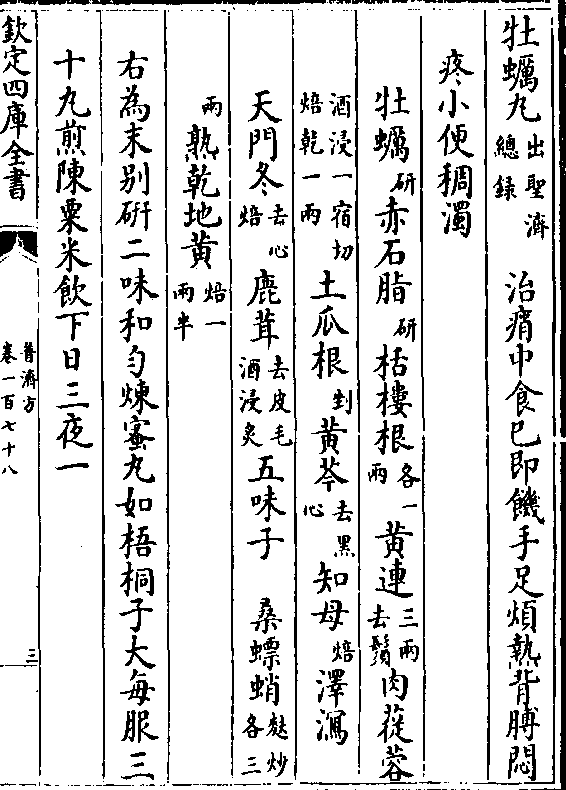 牡蠣丸出聖濟總錄　治痟中食已即饑手足煩熱背膊悶
疼小便稠濁
牡蠣研赤石脂研栝樓根各一兩黄連三兩去鬚肉蓯蓉
酒浸一宿切焙乾一兩土瓜根剉黄芩去黑心知母焙澤瀉
天門冬去心焙鹿茸去皮毛酒浸炙五味子　桑螵蛸麩炒各三
兩熟乾地黄焙一兩半
右為末别研二味和勻煉蜜丸如梧桐子大每服三
十丸煎陳粟米飲下日三夜一
欽定四庫全書
普濟方
卷一百七十八
三